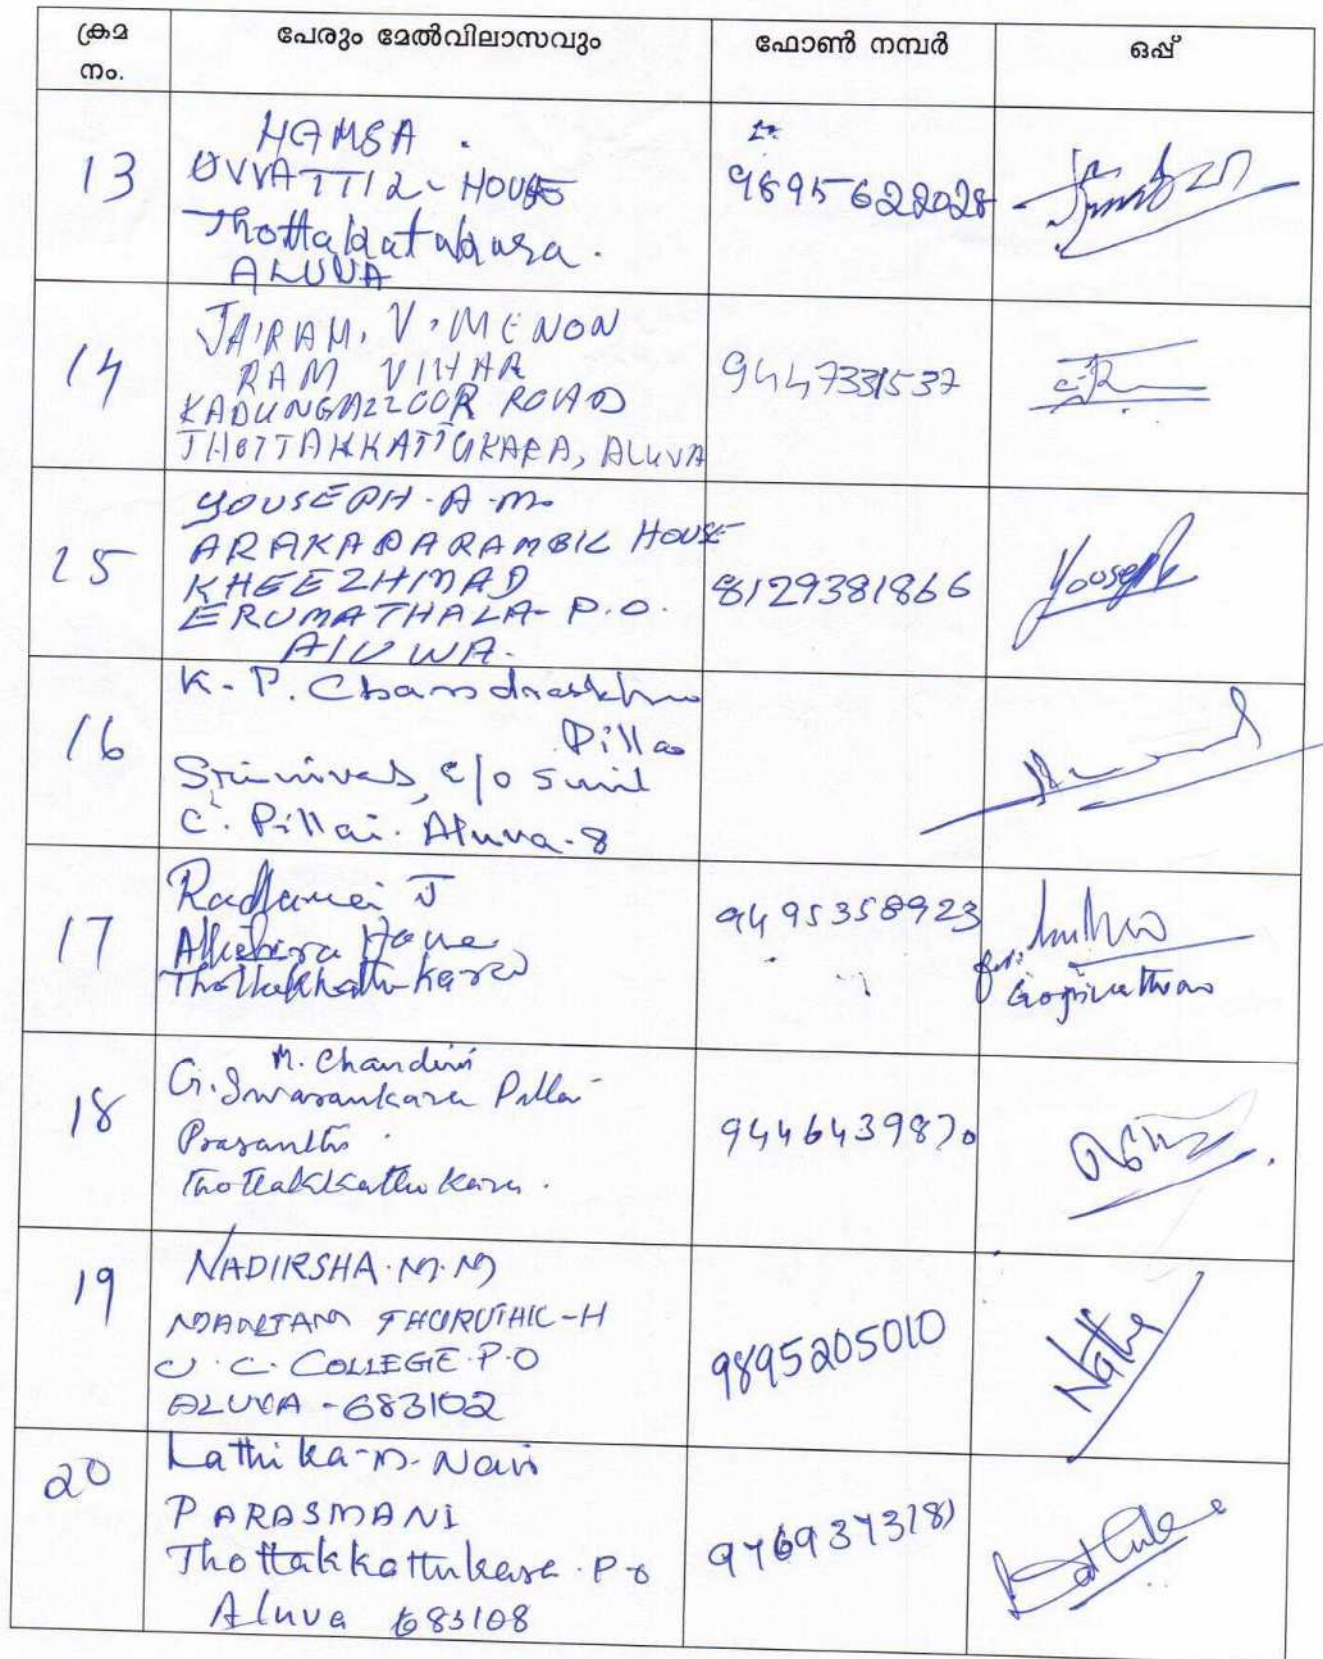 ക്രമ നം. പേരും മേൽവിലാസവും ഫോൺ നമ്പർ ഒപ്പ്
13
HAMSA.
HOUSE
Thottakatukara.
ALUVA
9895622028
14
JAIRAM. V. MENON
RAM VIHAR
KADUNGALLOOR ROAD
THOTTAKKATTUKARA, ALUVA
9447331537
15
YOUSEPH. A. M.
ARAKAPARAMBIL HOUSE
KHEEZHMAD
ERUMATHALA- P.O.
ALUWA.
8129381866
Youseph
16
K. P. Chandrasekhara
Pillai
Srinivas, c/o Sunil
C. Pillai. Aluva-8
17
J
House
Thottakkattukara
9495358923
for:
18
M. Chandini
G. Sivasankara Pillai
Prasanthi
Thottakkattukara.
9446439870
19
NADIRSHA. M. M
THURUTHIL-H
U. C. COLLEGE. P.O
ALUVA - 683102
9895205010
20
Lathika-M. Nair
PARASMANI
Thottakkattukara. P.O
Aluva 683108